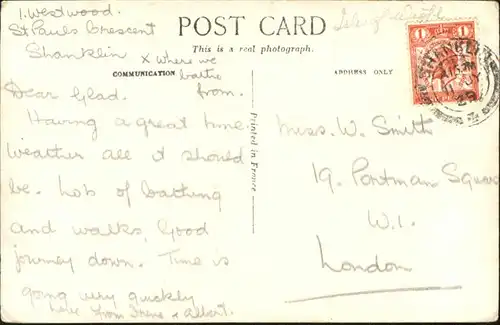 1. Westwood.
St Pauls Crescent
Shanklin
x where we
bathe
from.
POST CARD
This is a real photograph.
Isle of Wight
COMMUNICATION
ADDRESS ONLY
Printed in France
Dear Glad.
Having a great time
weather all it should
be. Lots of bathing
and walks. Good
journey down. Time is
going very quickly
love from Irene & Albert.
Miss. W. Smith
19. Portman Square
W.1.
London
1 1
SHANKLIN
29